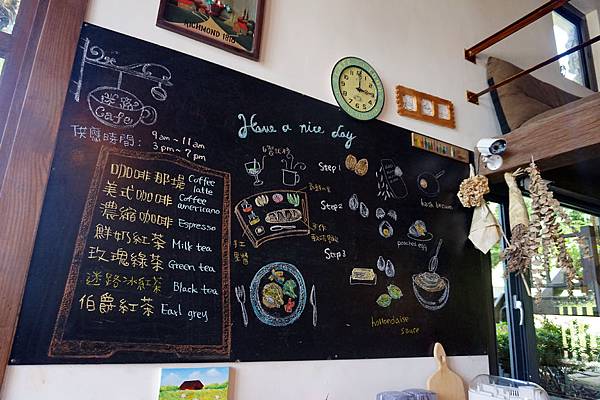 RICHMOND 1810
Cafe
供應時間:
9am~11am
3pm~7pm
咖啡那堤 Coffee latte
美式咖啡 Coffee americano
濃縮咖啡 Espresso
鮮奶紅茶 Milk tea
玫瑰綠茶 Green tea
迷路冰紅茶 Black tea
伯爵紅茶 Earl grey
Have a nice day
Step 1
Step 2
Step 3
hash browns
poached egg
hollandaise sauce